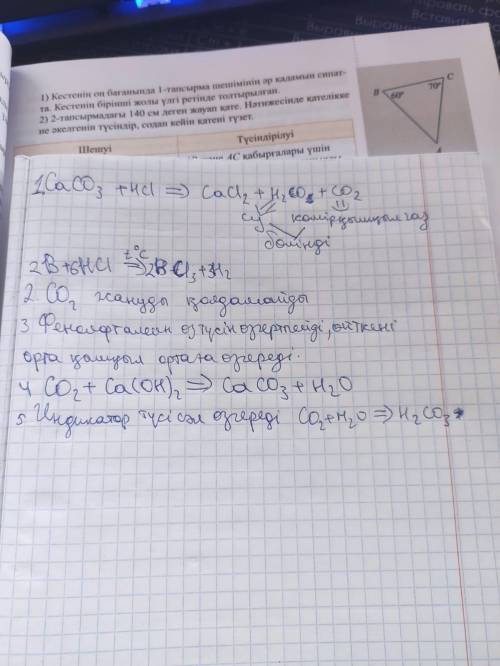 1) Кестенің оң бағанында 1-тапсырма шешімінің әр қадамын сипат-
та. Кестенің бірінші жолы үлгі ретінде толтырылған.
2) 2-тапсырмадағы 140 см деген жауап қате. Нәтижесінде қателікке
не әкелгенін түсіндір, содан кейін қатені түзет.
Шешуі Түсіндірілуі
AC қабырғалары үшін
B 60° 70° C
1. CaCO3 + HCl ⇒ CaCl2 + H2O + CO2
су көмірқышқыл газ
бөлінді
t°C
2B + 6HCl ⇒ 2BCl3 + 3H2
2. CO2 жануды қолдамайды
3 Фенолфталеин өз түсін өзгертпейді, өйткені
орта қышқыл ортаға өзгереді.
4 CO2 + Ca(OH)2 ⇒ CaCO3 + H2O
5 Индикатор түсі сәл өзгереді CO2 + H2O ⇒ H2CO3